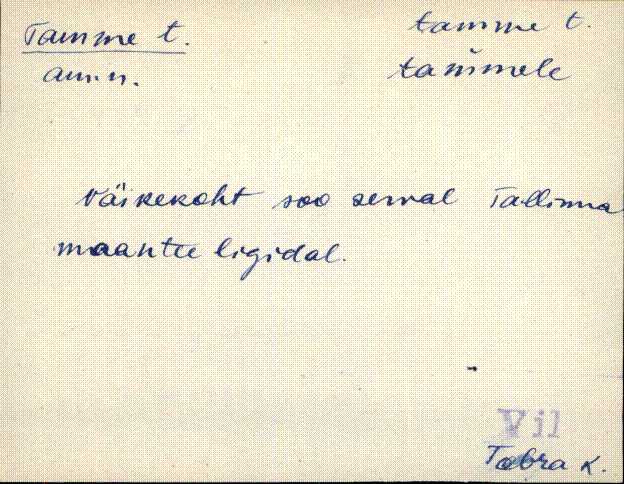 Tamme t.
tamme t.
am. n.
tam̀mele
Väikekoht soo serval Tallinna
maantee ligidal.
Vil
Tobra k.